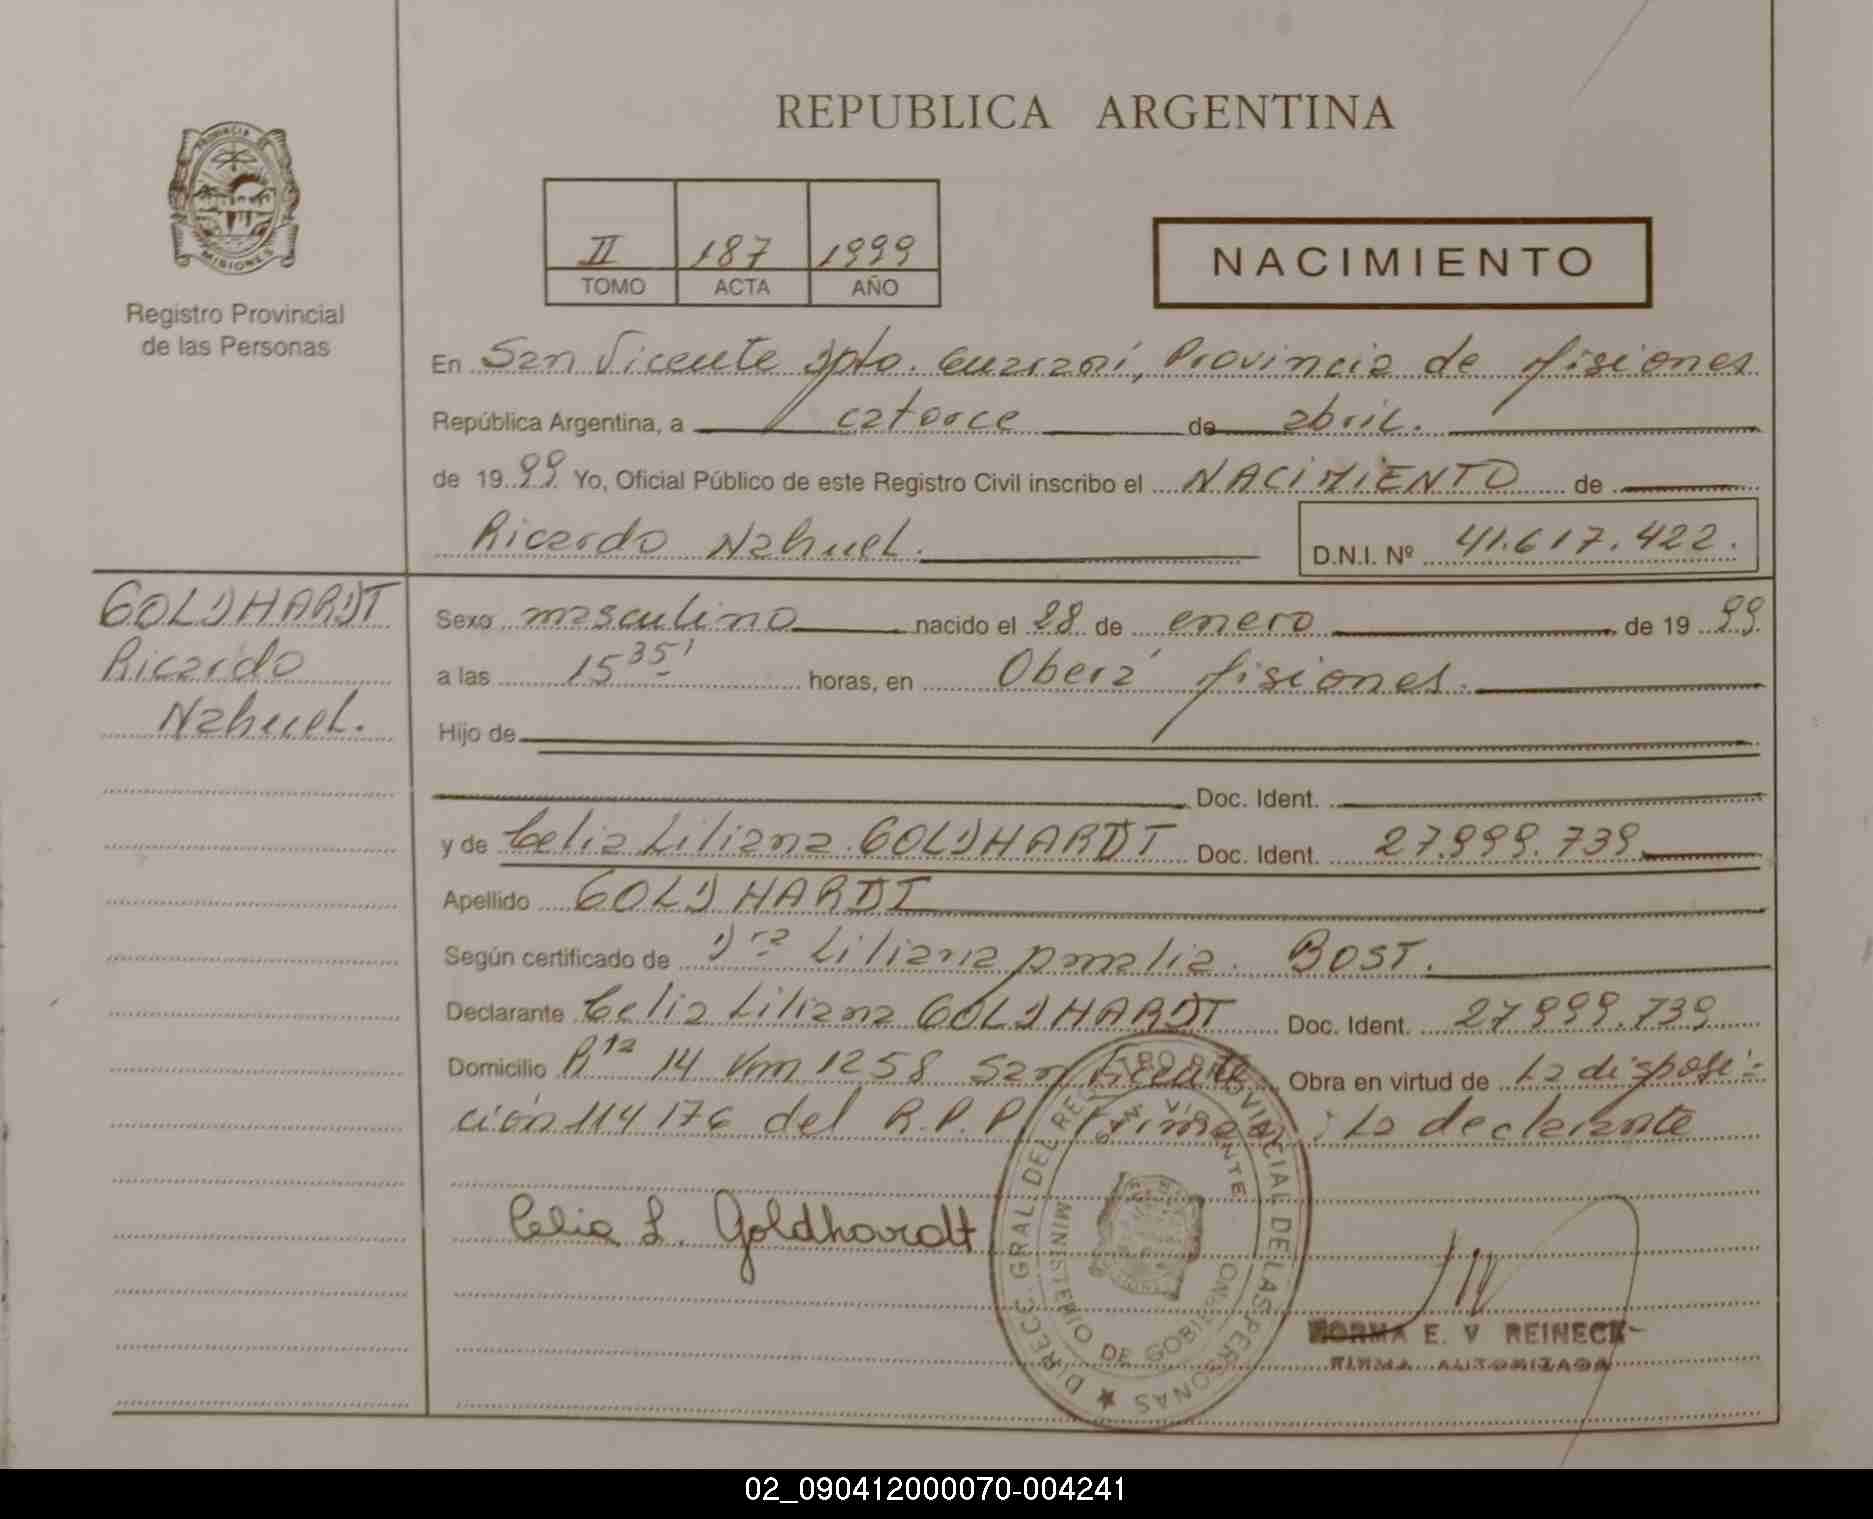 REPUBLICA ARGENTINA
PROVINCIA DE
MISIONES
Registro Provincial
de las Personas
II 187 1999
TOMO ACTA AÑO
NACIMIENTO
En San Vicente Dpto. Guaraní, Provincia de Misiones
República Argentina, a catorce de abril.
de 1999 Yo, Oficial Público de este Registro Civil inscribo el NACIMIENTO de
Ricardo Nahuel. D.N.I. Nº 41.617.422.
GOLDHARDT
Ricardo
Nahuel.
Sexo masculino nacido el 28 de enero de 1999
a las 15 35' horas, en Oberá Misiones.
Hijo de
Doc. Ident.
y de Celia Liliana GOLDHARDT Doc. Ident. 27.999.739
Apellido GOLDHARDT
Según certificado de Dra Liliana Amalia BOST.
Declarante Celia Liliana GOLDHARDT Doc. Ident. 27999.739
Domicilio Rta 14 Km 1258 San Vicente Obra en virtud de La disposi-
ción 114176 del R.P.P. Firman: La declarante
Celia L. Goldhardt
DIRECC. GRAL. DEL REGISTRO PROVINCIAL DE LAS PERSONAS
SAN VICENTE
MINISTERIO DE GOBIERNO
NORMA E. V REINECK
FIRMA AUTORIZADA
02_090412000070-004241